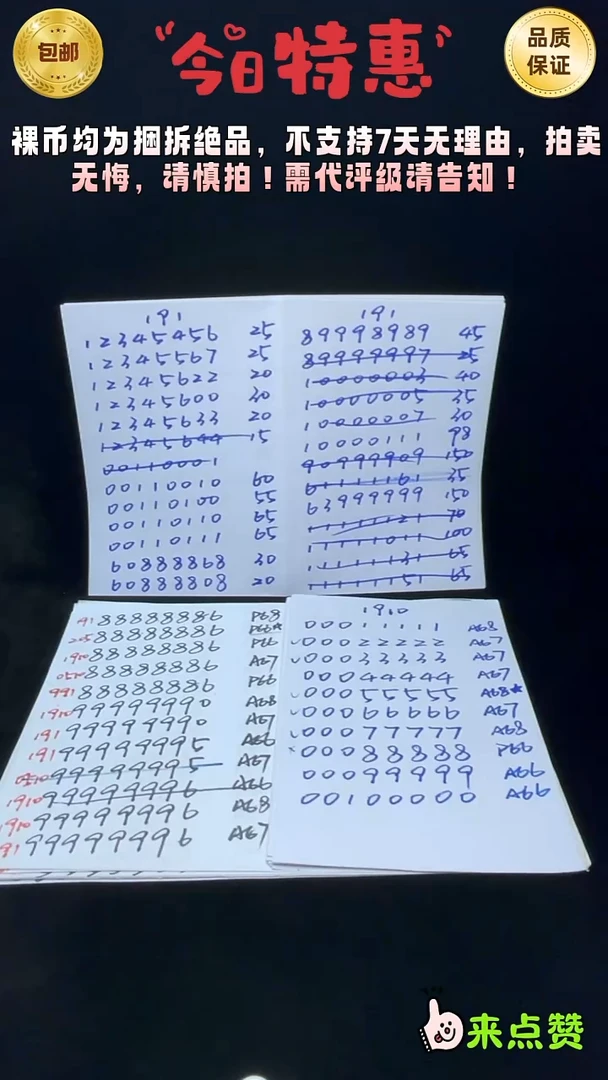 包邮
今日特惠
品质
保证
裸币均为捆拆绝品，不支持7天无理由，拍卖
无悔，请慎拍！需代评级请告知！
191
12345456 25
12345567 25
12345622 20
12345600 30
12345633 20
12345644 15
00110001
00110010 60
00110100 55
00110110 65
00110111 65
60888868 30
60888808 20
191
89998989 45
89999997 25
10000003 40
10000005 35
10000007 30
10000111 98
90999909 150
61111161 35
63999999 150
11111121 70
11111011 100
11111131 65
11111151 65
191 88888886 P68
205 88888886 P66★
1910 88888886 P66
0510 88888886 A67
991 88888886 P66
1910 99999990 A68
191 99999990 A67
191 99999995 A66
0510 99999995 A67
1910 99999996 A66
1910 99999996 A68
191 99999996 A67
1910
00011111 A68
00022222 A67
00033333 A67
00044444 A67
00055555 A68★
00066666 A67
00077777 A68
00088888 P66
00099999 A66
00100000 A66
来点赞